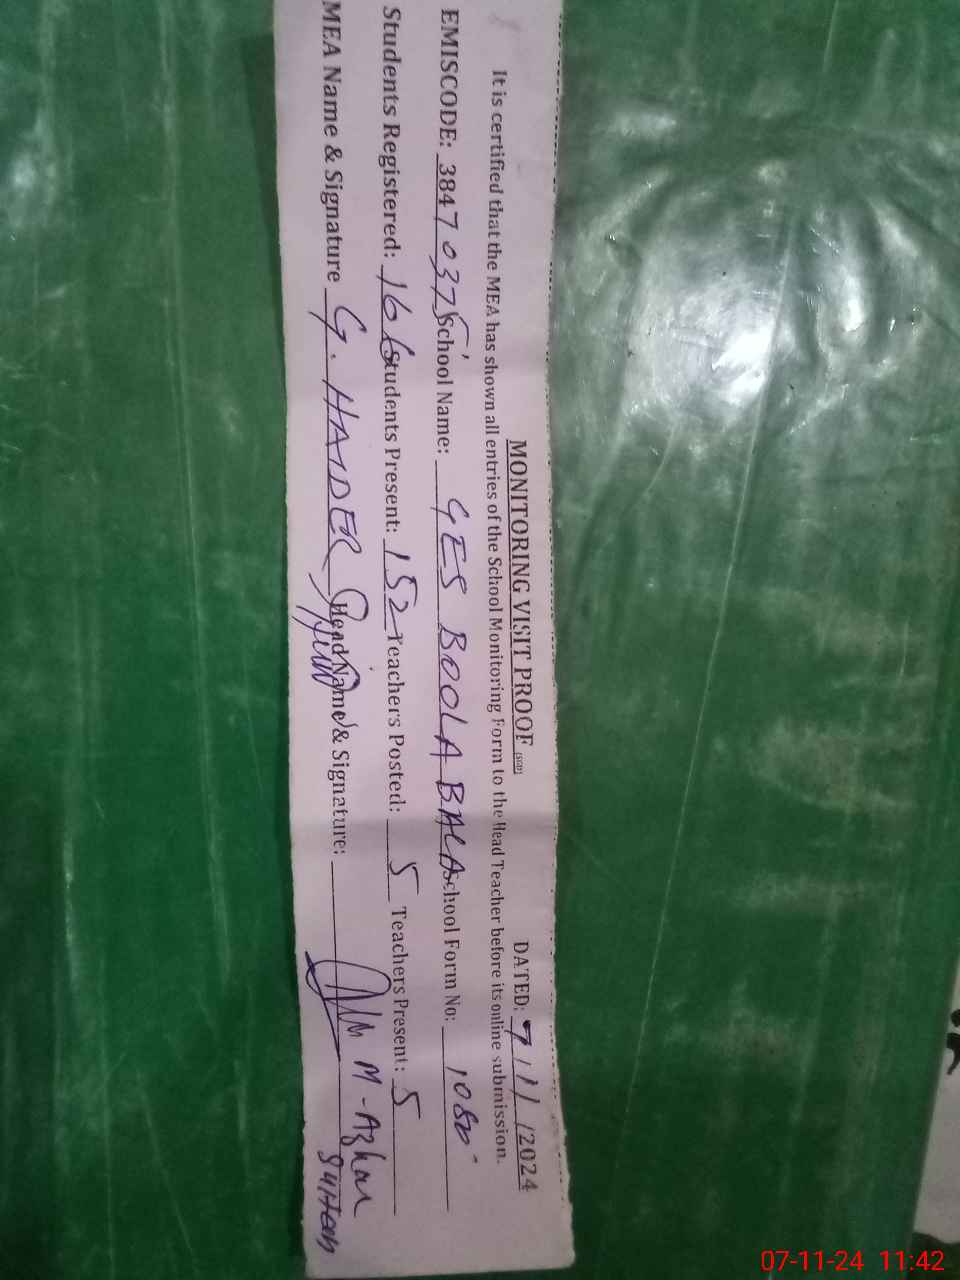 MONITORING VISIT PROOF (SGD) DATED: 7 / 11 /2024
It is certified that the MEA has shown all entries of the School Monitoring Form to the Head Teacher before its online submission.
EMISCODE: 3847037 School Name: GES BOOLA BALA School Form No: 1080
Students Registered: 166 Students Present: 152 Teachers Posted: 5 Teachers Present: 5
MEA Name & Signature G. HAIDER Head Name & Signature: M-Azhar
07-11-24 11:42